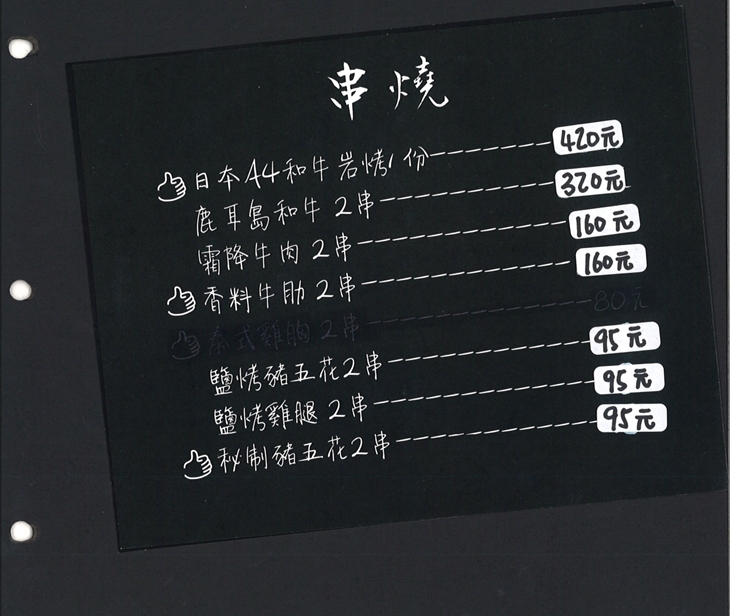 串燒
日本A4和牛岩烤1份 420元
鹿耳島和牛2串 320元
霜降牛肉2串 160元
香料牛肋2串 160元
泰式雞胸2串 80元
鹽烤豬五花2串 95元
鹽烤雞腿2串 95元
秘制豬五花2串 95元